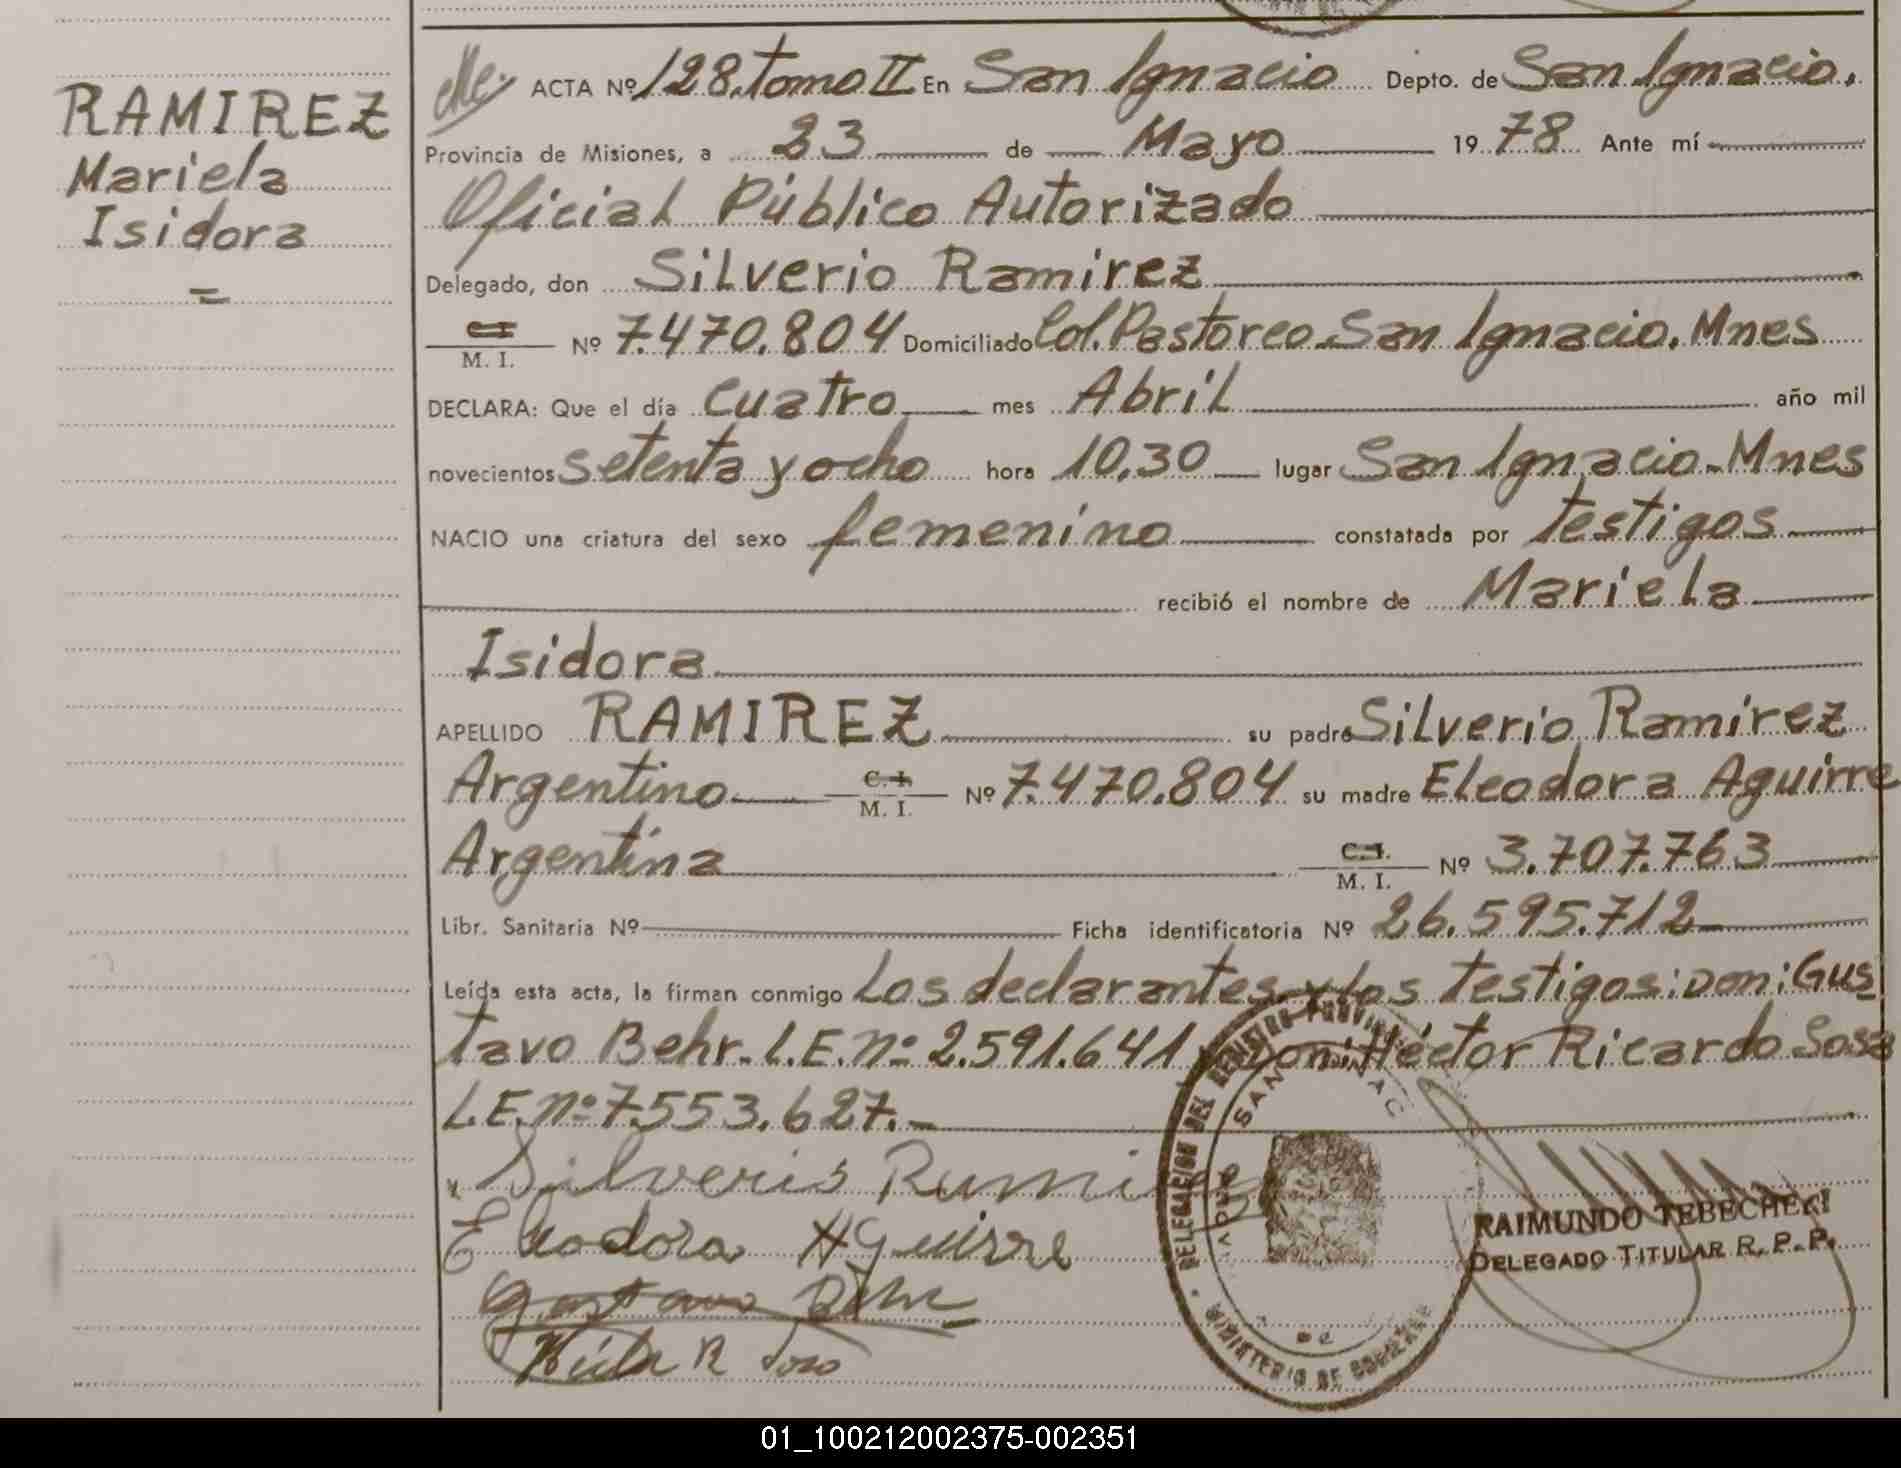 RAMIREZ
Mariela
Isidora
ACTA Nº 128. tomo II En San Ignacio Depto. de San Ignacio.
Provincia de Misiones, a 23 de Mayo 19 78 Ante mí
Oficial Público Autorizado
Delegado, don Silverio Ramirez
C.I.
M. I. Nº 7.470.804 Domiciliado Col. Pastoreo. San Ignacio. Mnes
DECLARA: Que el día cuatro mes Abril año mil
novecientos setenta y ocho hora 10,30 lugar San Ignacio. Mnes
NACIO una criatura del sexo femenino constatada por testigos
recibió el nombre de Mariela
Isidora
APELLIDO RAMIREZ su padre Silverio Ramirez
Argentino C. I. M. I. Nº 7.470.804 su madre Eleodora Aguirre
Argentina C. I. M. I. Nº 3.707.763
Libr. Sanitaria Nº Ficha identificatoria Nº 26.595.712
Leída esta acta, la firman conmigo Los declarantes y los testigos: Don: Gus
tavo Behr. L.E. nº 2.591.641 Don: Héctor Ricardo Sosa
L.E. nº 7.553.627.
Silverio Rami
Eleodora Aguirre
Gustavo Behr
R Soso
DELEGACION DEL REGISTRO PROVINCIAL
SAN IGNAC
MINISTERIO DE GOBIERNO
RAIMUNDO TEBECHEKI
DELEGADO TITULAR R. P. P.
01_100212002375-002351